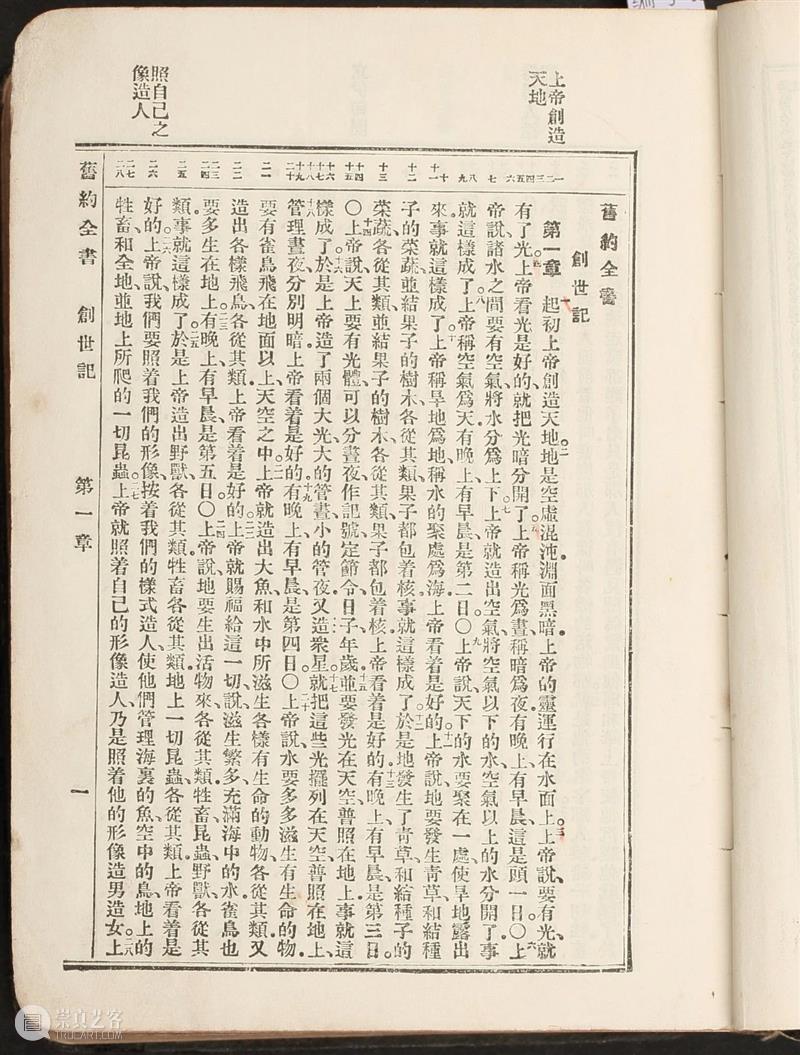 上帝創造
天地
照自己之
像造人
舊約全書
創世記
第一章 起初上帝創造天地地是空虛混沌淵面黑暗上帝的靈運行在水面上上帝說要有光就
有了光上帝看光是好的就把光暗分開了上帝稱光爲晝稱暗爲夜有晚上有早晨這是頭一日〇上
帝說諸水之間要有空氣將水分爲上下上帝就造出空氣將空氣以下的水空氣以上的水分開了事
就這樣成了上帝稱空氣爲天有晚上有早晨是第二日〇上帝說天下的水要聚在一處使旱地露出
來事就這樣成了上帝稱旱地爲地稱水的聚處爲海上帝看着是好的上帝說地要發生青草和結種
子的菜蔬並結果子的樹木各從其類果子都包着核事就這樣成了於是地發生了青草和結種子的
菜蔬各從其類並結果子的樹木各從其類果子都包着核上帝看着是好的有晚上有早晨是第三日
〇上帝說天上要有光體可以分晝夜作記號定節令日子年歲並要發光在天空普照在地上事就這
樣成了於是上帝造了兩個大光大的管晝小的管夜又造衆星就把這些光擺列在天空普照在地上
管理晝夜分別明暗上帝看着是好的有晚上有早晨是第四日〇上帝說水要多多滋生有生命的物
要有雀鳥飛在地面以上天空之中上帝就造出大魚和水中所滋生各樣有生命的動物各從其類又
造出各樣飛鳥各從其類上帝看着是好的上帝就賜福給這一切說滋生繁多充滿海中的水雀鳥也
要多生在地上有晚上有早晨是第五日〇上帝說地要生出活物來各從其類牲畜昆蟲野獸各從其
類事就這樣成了於是上帝造出野獸各從其類牲畜各從其類地上一切昆蟲各從其類上帝看着是
好的上帝說我們要照着我們的形像按着我們的樣式造人使他們管理海裏的魚空中的鳥地上的
牲畜和全地並地上所爬的一切昆蟲上帝就照着自己的形像造人乃是照着他的形像造男造女上
舊約全書 創世記 第一章 一
崇真艺客